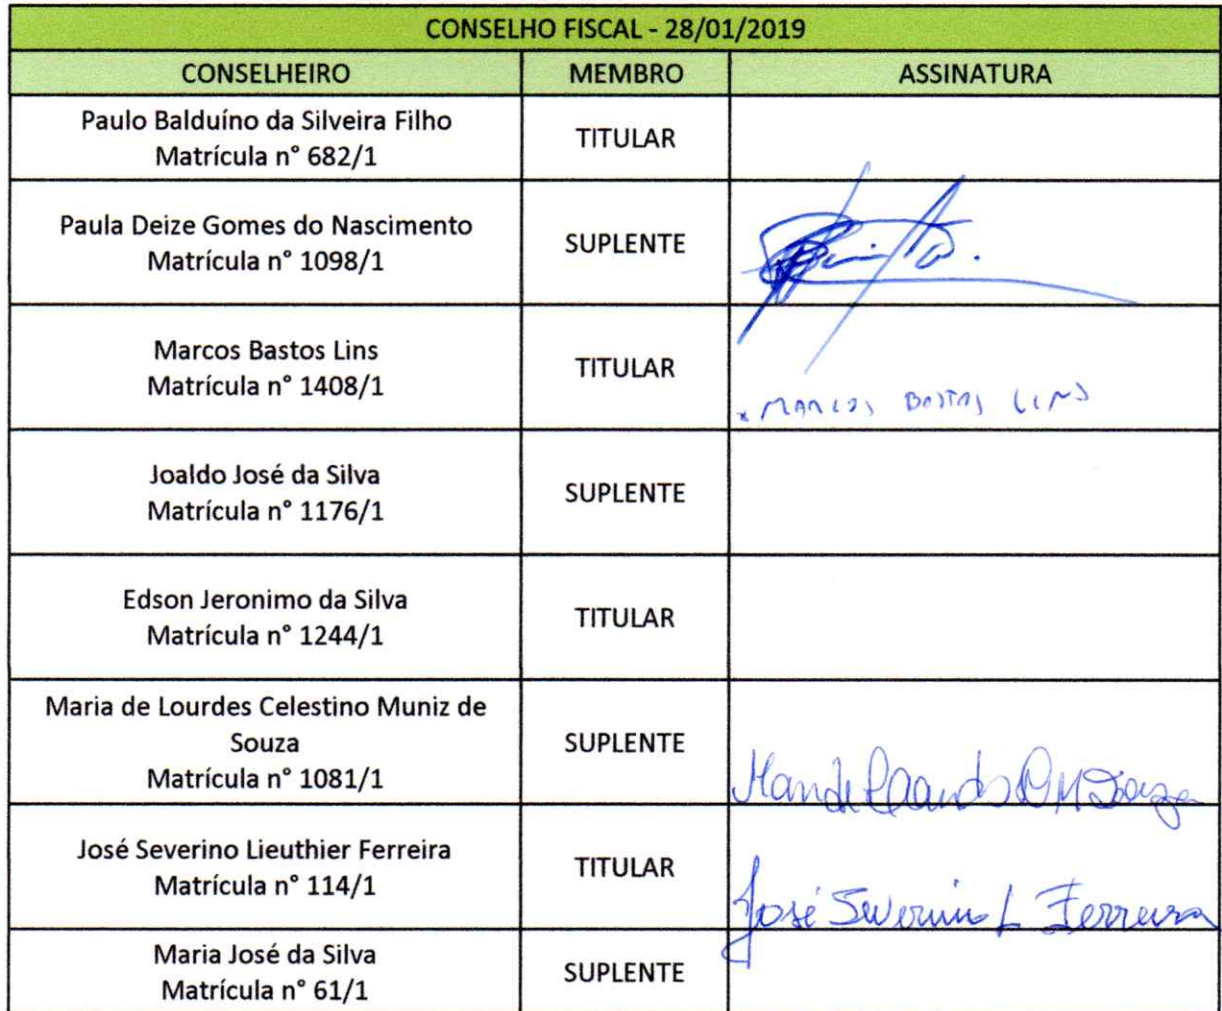 CONSELHO FISCAL - 28/01/2019
CONSELHEIRO MEMBRO ASSINATURA
Paulo Balduíno da Silveira Filho
Matrícula n° 682/1
TITULAR
Paula Deize Gomes do Nascimento
Matrícula n° 1098/1
SUPLENTE
Marcos Bastos Lins
Matrícula n° 1408/1
TITULAR
x MARCOS BASTOS LINS
Joaldo José da Silva
Matrícula n° 1176/1
SUPLENTE
Edson Jeronimo da Silva
Matrícula n° 1244/1
TITULAR
Maria de Lourdes Celestino Muniz de
Souza
Matrícula n° 1081/1
SUPLENTE
José Severino Lieuthier Ferreira
Matrícula n° 114/1
TITULAR
José Severino L Ferreira
Maria José da Silva
Matrícula n° 61/1
SUPLENTE